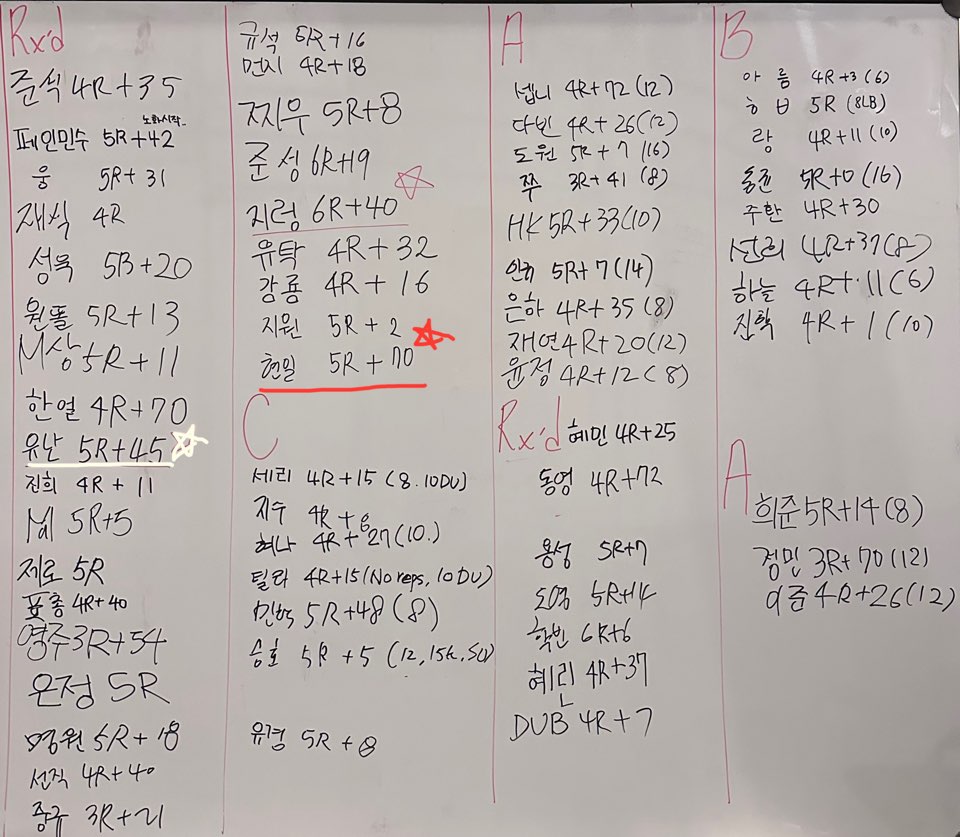 Rx'd
준석 4R+35
노화시작..
페인민수 5R+42
웅 5R+31
재식 4R
성욱 5R+20
원똘 5R+13
M상 5R+11
한열 4R+70
유난 5R+45
진희 4R+11
5R+5
제로 5R
표종 4R+40
영주 3R+54
은정 5R
명원 5R+18
선직 4R+40
중규 3R+21
규석 5R+16
먼지 4R+18
찌우 5R+8
준성 6R+19
지렁 6R+40
유탁 4R+32
강룡 4R+16
지원 5R+2
현일 5R+70
C
세리 4R+15 (8.10DU)
지수 4R+6
혜나 4R+27(10.)
틸라 4R+15(No reps, 10DU)
민혁 5R+48(8)
승호 5R+5 (12, 15k, SU)
유경 5R+8
A
셉니 4R+72(12)
다빈 4R+26(12)
도원 5R+7(16)
쭈 3R+41(8)
HK 5R+33(10)
5R+7(14)
은하 4R+35(8)
재연 4R+20(12)
윤정 4R+12(8)
Rx'd
혜민 4R+25
동영 4R+72
용성 5R+7
도영 5R+14
학빈 6R+6
혜린 4R+37
DUB 4R+7
B
아름 4R+3(6)
5R (8LB)
랑 4R+11(10)
5R+0(16)
주환 4R+30
선희 4R+37(8)
하늘 4R+11(6)
진혁 4R+1(10)
A
희준 5R+14(8)
정민 3R+70(12)
여줌 4R+26(12)